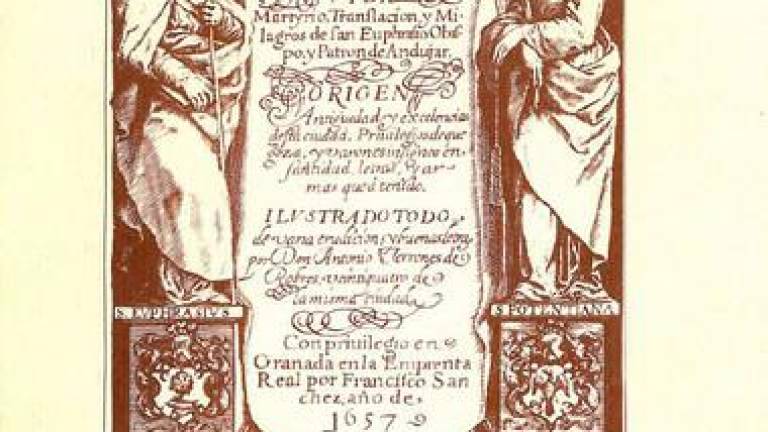 Martyrio, Translacion, y Mi-
lagros de san Euphrasio Obis-
po, y Patron de Andujar.
ORIGEN
Antiguedad, y excelencias
desta ciudad. Priuilegios de que
goza, y varones insignes en
santidad, letras, y ar-
mas que á tenido.
ILVSTRADO TODO,
de varia erudicion, y buenas letras
por Don Antonio Terrones de
Robres, veintiquatro de
la misma ciudad
S. EVPHRASIVS
S POTENTIANA
Con priuilegio en
Granada en la Emprenta
Real por Francisco San
chez, año de
1657